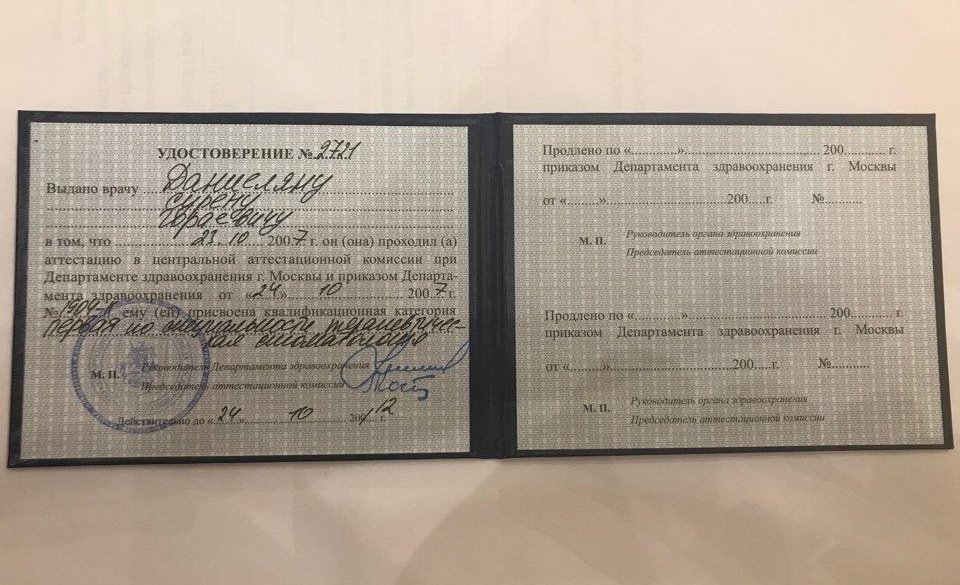 УДОСТОВЕРЕНИЕ № 2721
Выдано врачу Даниеляну
Сурену
Горасевичу
в том, что 23.10 2007 г. он (она) проходил (а)
аттестацию в центральной аттестационной комиссии при
Департаменте здравоохранения г. Москвы и приказом Департа-
мента здравоохранения от «24» 10 2007 г.
№ ему (ей) присвоена квалификационная категория
первая по специальности терапевтичес-
кая стоматология
М. П. Руководитель Департамента здравоохранения
Председатель аттестационной комиссии
Действительно до «24» 10 2012 г.
Продлено по «..........».............................. 200.......... г.
приказом Департамента здравоохранения г. Москвы
от «........»..............................200.....г. №..........
М. П. Руководитель органа здравоохранения
Председатель аттестационной комиссии
Продлено по «..........».............................. 200.......... г.
приказом Департамента здравоохранения г. Москвы
от «........»..............................200.....г. №..........
М. П. Руководитель органа здравоохранения
Председатель аттестационной комиссии